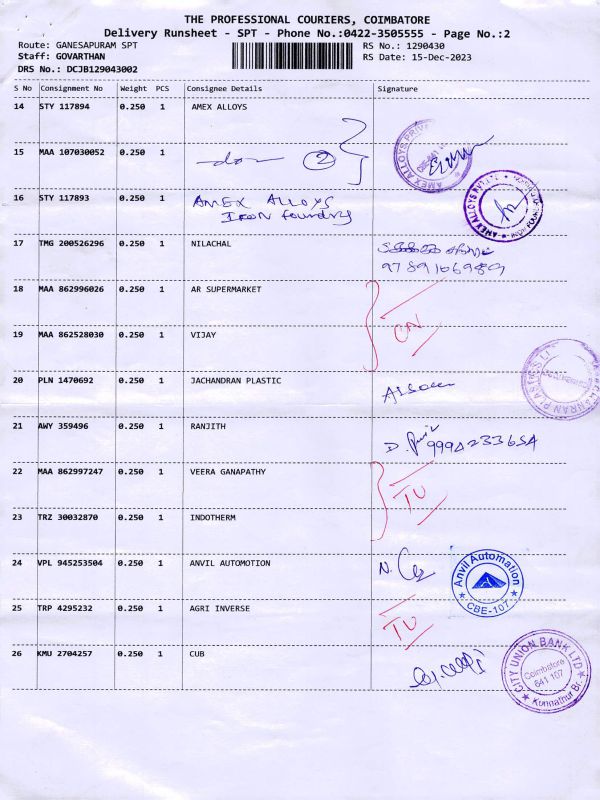 THE PROFESSIONAL COURIERS, COIMBATORE
Delivery Runsheet - SPT - Phone No.:0422-3505555 - Page No.:2
Route: GANESAPURAM SPT
Staff: GOVARTHAN
DRS No.: DCJB129043002
RS No.: 1290430
RS Date: 15-Dec-2023
S No Consignment No Weight PCS Consignee Details Signature
14 STY 117894 0.250 1 AMEX ALLOYS
15 MAA 107030052 0.250 1 ②
16 STY 117893 0.250 1 AMEX ALLOYS
Iron foundry
17 TMG 200526296 0.250 1 NILACHAL
9789166989
18 MAA 862996026 0.250 1 AR SUPERMARKET
CN
19 MAA 862528030 0.250 1 VIJAY
20 PLN 1470692 0.250 1 JACHANDRAN PLASTIC
21 AWY 359496 0.250 1 RANJITH
22 MAA 862997247 0.250 1 VEERA GANAPATHY
TU
23 TRZ 30032870 0.250 1 INDOTHERM
24 VPL 945253504 0.250 1 ANVIL AUTOMOTION
Anvil Automation
★ CBE-107 ★
25 TRP 4295232 0.250 1 AGRI INVERSE
TU
26 KMU 2704257 0.250 1 CUB
CITY UNION BANK LTD
Coimbatore
641 107
Kunnathur Br.